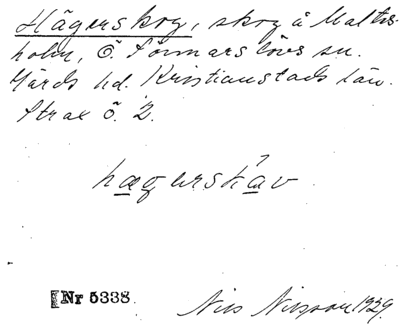 Hägerskog, skog å Maltes-
holm, Ö. Sönnarslövs sn.
Gärds hd. Kristianstads län.
Strax ö. 2.
hægerskav
Nr 5338
Nils Nilsson 1929.